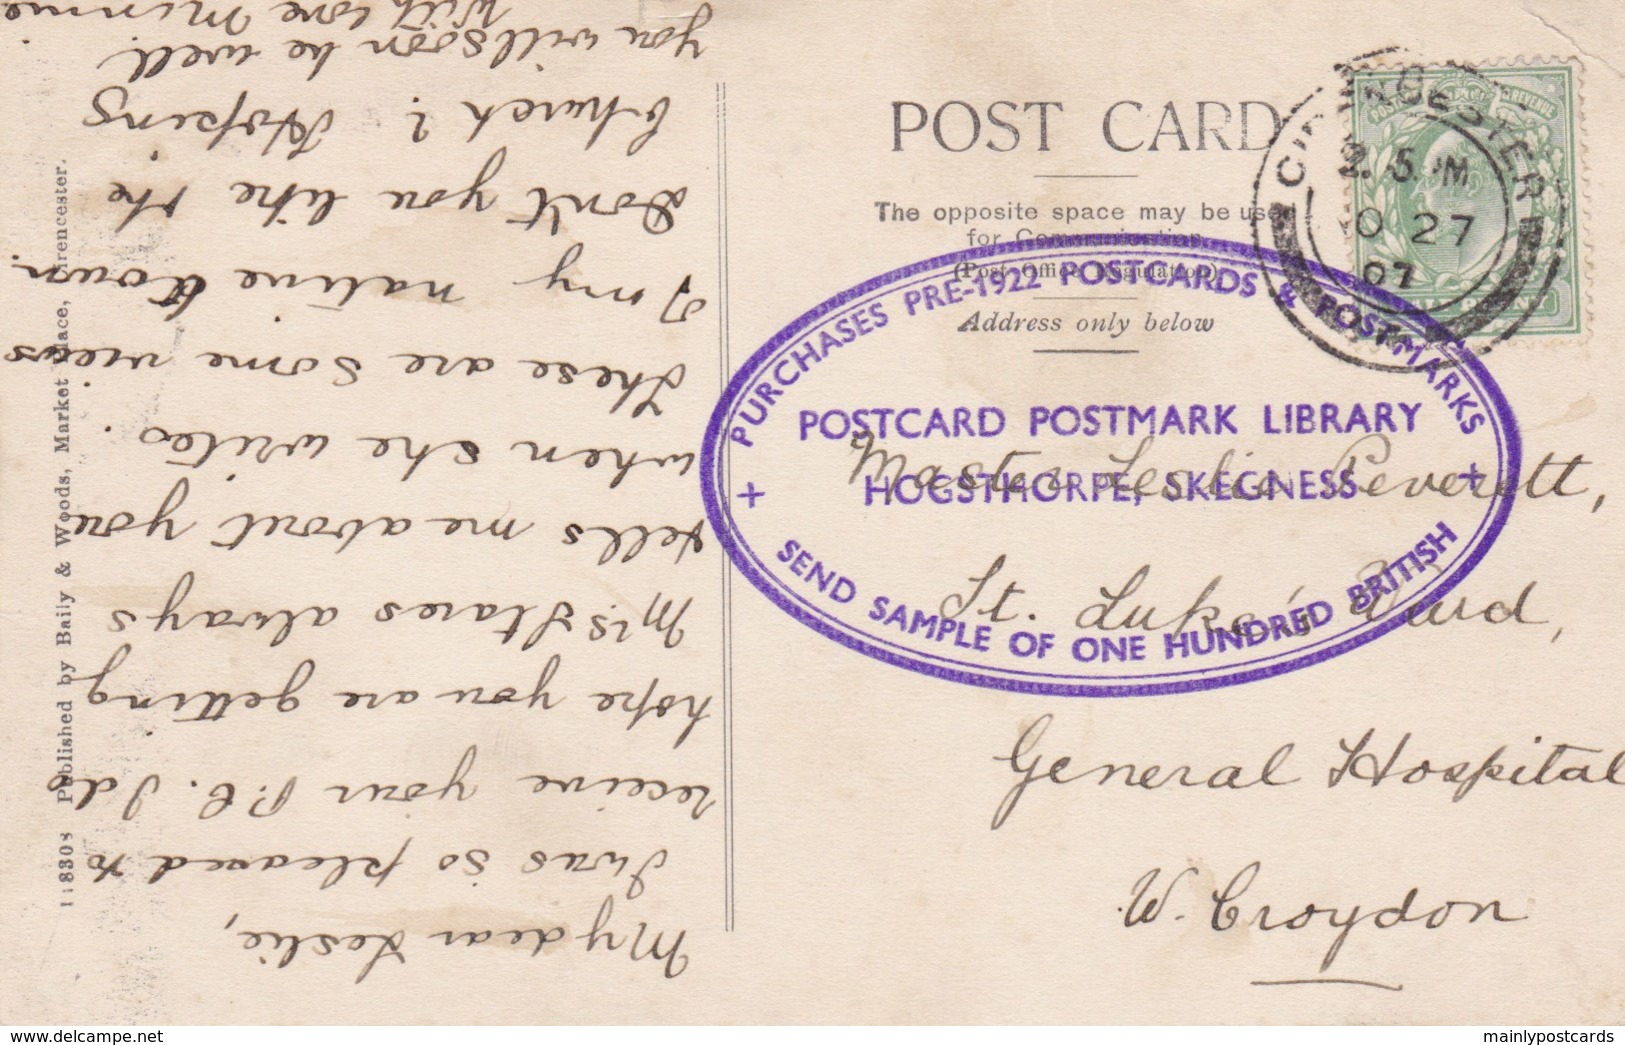 My dear Leslie,
I was so pleased to
receive your P.C. I do
hope you are getting
Mrs Stares always
tells me about you
when she writes.
These are some views
of my native town.
Don't you like the
Church? Hoping
you will soon be well.
With love Minnie
11830s Published by Baily & Woods, Market Place, Cirencester.
POST CARD
The opposite space may be used
for Communication
(Post Office Regulation)
Address only below
CIRENCESTER
2. 5. PM
O 27
07
POSTAGE REVENUE
HALF PENNY
PURCHASES PRE-1922 POSTCARDS & POSTMARKS
POSTCARD POSTMARK LIBRARY
HOGSTHORPE, SKEGNESS
SEND SAMPLE OF ONE HUNDRED BRITISH
Master Leslie Peverett,
St. Luke's Ward,
General Hospital
W. Croydon
delcampe.net
mainlypostcards